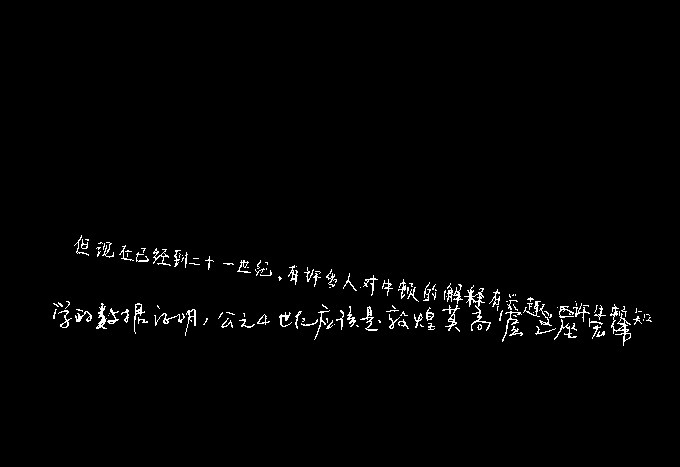 但现在已经到二十一世纪,有许多人对牛顿的解释有兴趣
学的数据证明,公元4世纪应该是敦煌莫高窟这座宏伟